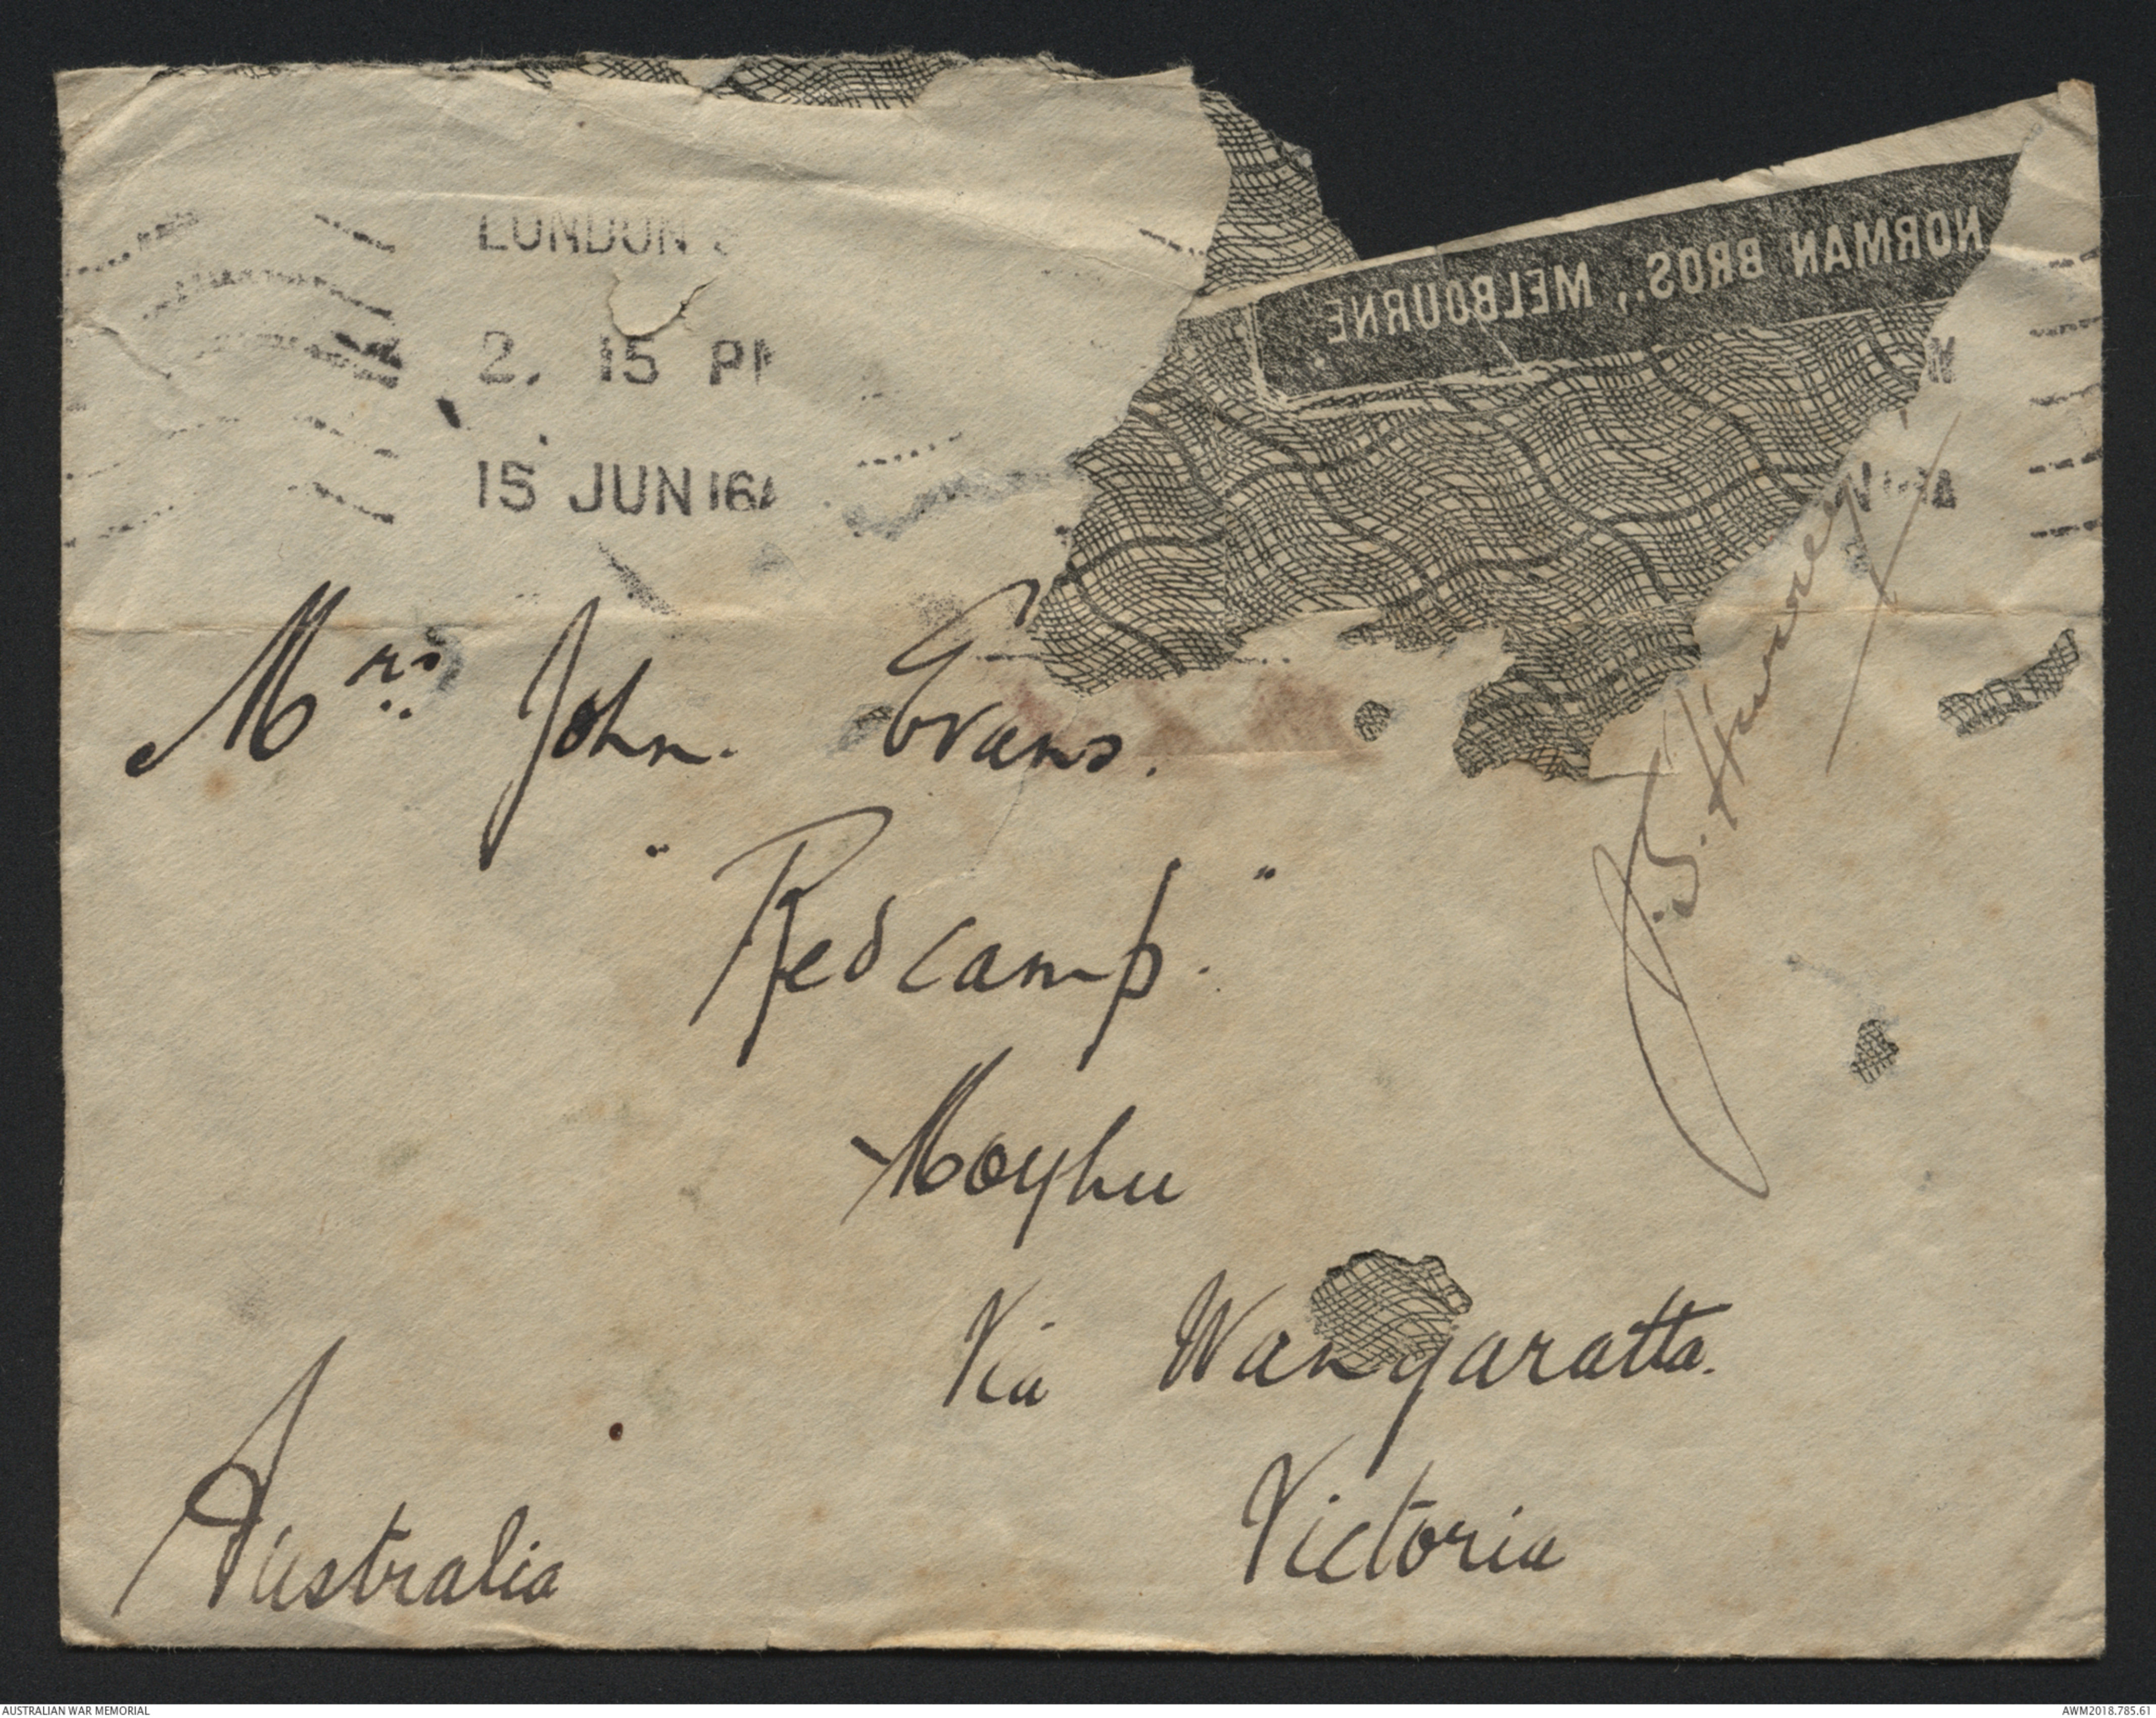 LONDON
2. 15 PM
15 JUN 16A
NORMAN BROS., MELBOURNE.
Mrs John. Evans.
"Redcamp."
Moyhu
Via Wangaratta.
Victoria
Australia
AUSTRALIAN WAR MEMORIAL
AWM2018.785.61